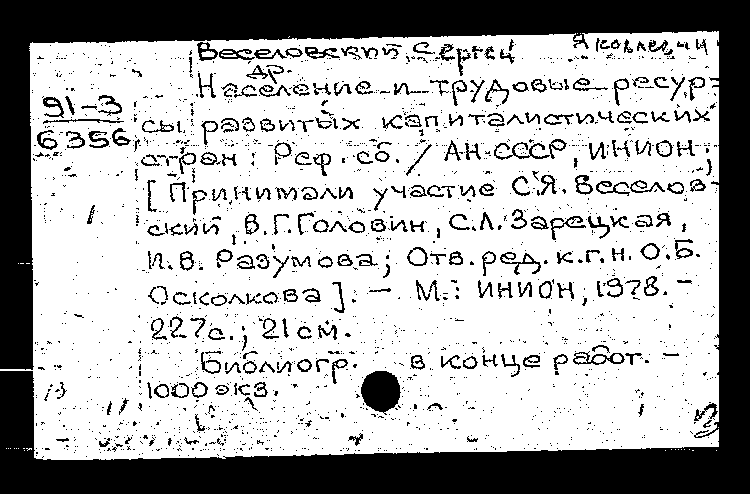 Веселовский, Сергей Яковлевич
др.
Население и трудовые ресур-
91-3
6356
сы развитых капиталистических
стран: Реф. сб. / АН СССР, ИНИОН;
[Принимали участие С.Я. Веселов-
ский, В.Г. Головин, С.Л. Зарецкая,
И.В. Разумова; Отв. ред. к.г.н. О.Б.
Осколкова]. — М.: ИНИОН, 1978. -
227с.; 21см.
Библиогр. в конце работ. —
1000 экз.